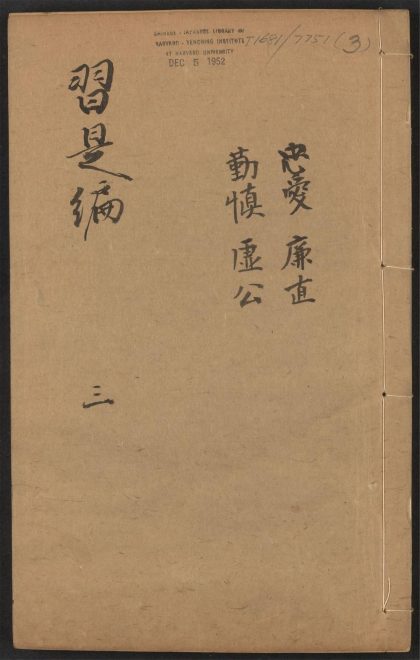 CHINESE - JAPANESE LIBRARY OF
HARVARD - YENCHING INSTITUTE
AT HARVARD UNIVERSITY
DEC 5 1952
T1681/7751 (3)
忠愛 廉直
勤慎 虛公
習是編
三